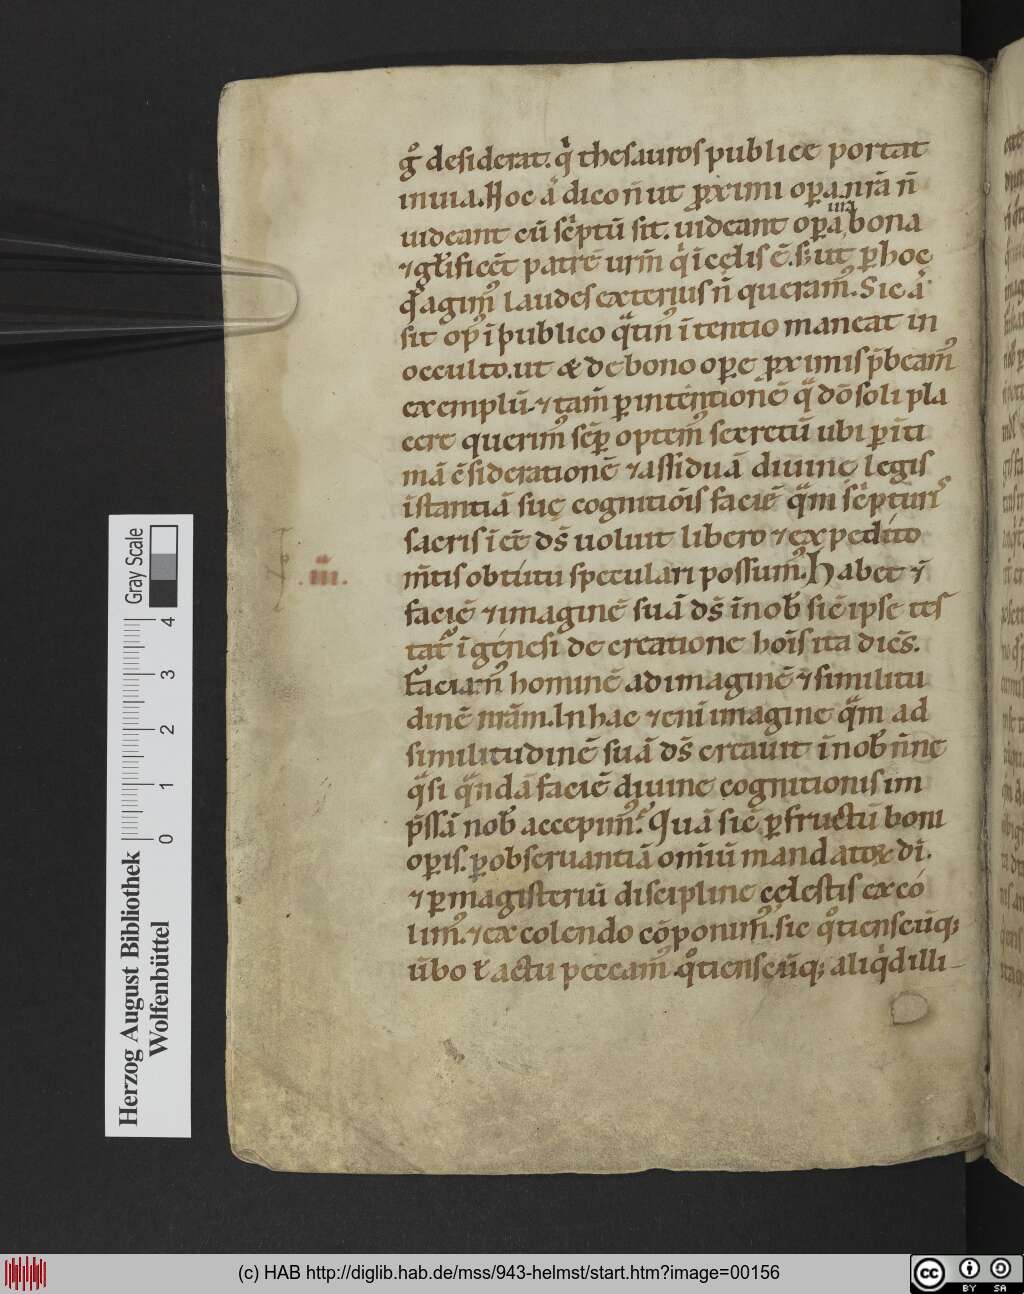 gͦ desiderat. qͥ thesauros publice portat
in uia. Hoc aͫ dico n̄ ut ꝓximi opa nr̄a n̄
uideant cū scͥptū sit. uideant opa uͬa bona
⁊ glͥificēt patrē urm̄ qͥ ī cęlis ē. sꝫ ut ꝑ hoc
qͩ agimꝰ laudes exterius n̄ queramꝰ. Sic aͫ
sit opꝰ ī publico qͣtinꝰ ītentio maneat in
occulto. ut & de bono oꝑe ꝓximis p̄beamꝰ
exemplū. ⁊ tam̄ ꝑ intentionē qͣ dō soli pla
cere querimꝰ sēꝑ optemꝰ secretū ubi ꝑ īti
mā ɔ̄siderationē ⁊ assiduā diuinę legis
īstantiā suę cognitiōis faciē qͣm scͥpturͥs
sacris īēē ds̄ uoluit libero ⁊ expedito
m̄tis obtutu speculari possumꝰ. Habet ⁊ī
faciē ⁊ imaginē suā ds̄ ī nob̄ sic̄ ipse tes
tatͬ ī genesi de creatione hoīs ita dicēs.
Faciamꝰ hominē ad imaginē ⁊ similitu
dinē nr̄am. In hac ⁊enī imagine qͣm ad
similitudinē suā ds̄ creauit ī nob̄ om̄ne
qͣsi qͣndā faciē diuine cognitionis im
p̄ssā nob̄ accepimꝰ. Quā sic̄ ꝑ fructū boni
oꝑis. ꝑ obseruantiā omīū mandatoꝝ di.
⁊ ꝑ magisteriū discipline cęlestis exco
limꝰ. ⁊ excolendo cōponimꝰ. sic qͦtienscūqꝫ
ūbo ł actu peccamꝰ. qͦtienscūqꝫ aliqͥd illi
.iii.
Gray Scale
0 1 2 3 4
Herzog August Bibliothek
Wolfenbüttel
(c) HAB http://diglib.hab.de/mss/943-helmst/start.htm?image=00156
cc BY SA